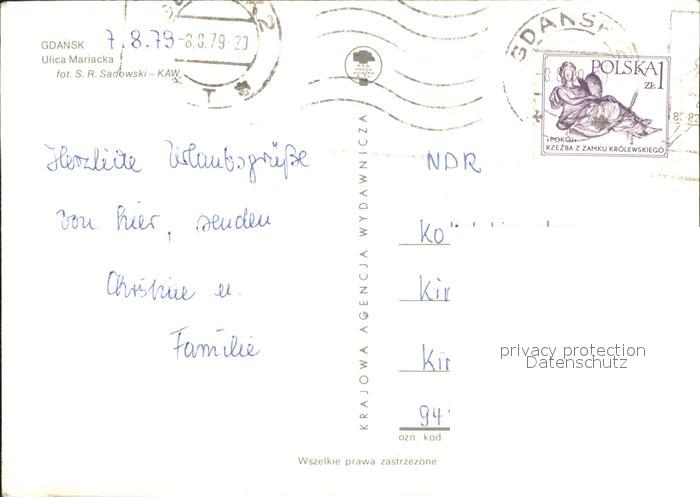 GDAŃSK 7.8.79
-8.8.79-20
Ulica Mariacka
fot. S. R. Sadowski – KAW
GDAŃSK
POLSKA 1
ZŁ
»POKÓJ«
RZEŹBA Z ZAMKU KRÓLEWSKIEGO
Herzliche Urlaubsgrüße
von hier, senden
Christine u.
Familie
KRAJOWA AGENCJA WYDAWNICZA
NDR
Ko
Kir
Kir
94
ozn. kod.
privacy protection
Datenschutz
Wszelkie prawa zastrzeżone